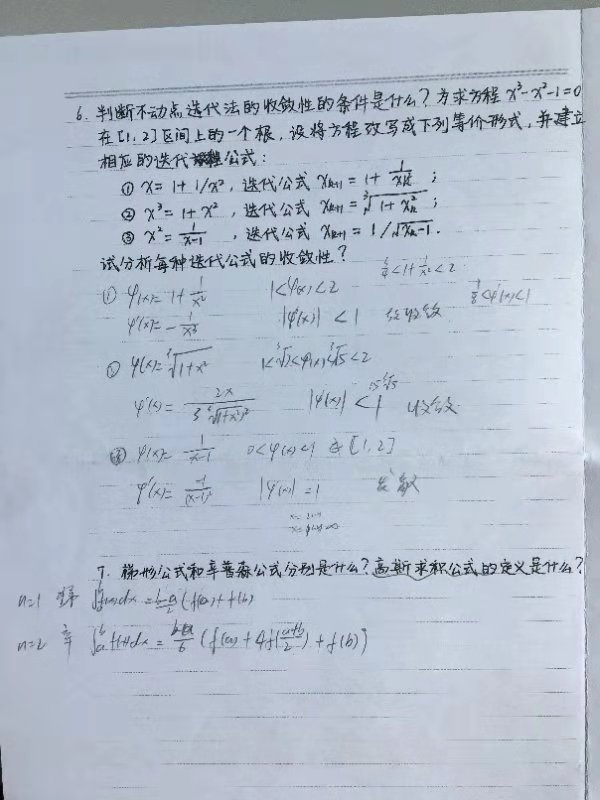 6. 判断不动点迭代法的收敛性的条件是什么?为求方程 x³-x²-1=0
在[1,2]区间上的一个根,设将方程改写成下列等价形式,并建立
相应的迭代公式:
① x=1+1/x²,迭代公式 xₖ₊₁=1+1/xₖ²;
② x³=1+x²,迭代公式 xₖ₊₁=∛(1+xₖ²);
③ x²=1/(x-1),迭代公式 xₖ₊₁=1/√(xₖ-1).
试分析每种迭代公式的收敛性?
5/4<1+1/x²<2
① φ(x)=1+1/x² 1<φ(x)<2 1/8<φ'(x)<1
φ'(x)=-1/x³ |φ'(x)|<1 收敛
② φ(x)=∛(1+x²) 1<∛2<φ(x)<∛5<2
φ'(x)=2x/(3∛(1+x²)²) |φ'(x)|<1 收敛
③ φ(x)=1/(x-1) 0<φ(x)<1 [1,2]
φ'(x)=-1/(x-1)² |φ'(x)|=1 发散
7. 梯形公式和辛普森公式分别是什么?高斯求积公式的定义是什么?
n=1 ∫f(x)dx=(b-a)/2 (f(a)+f(b))
n=2 辛 ∫ₐᵇf(x)dx=(b-a)/6 (f(a)+4f((a+b)/2)+f(b))